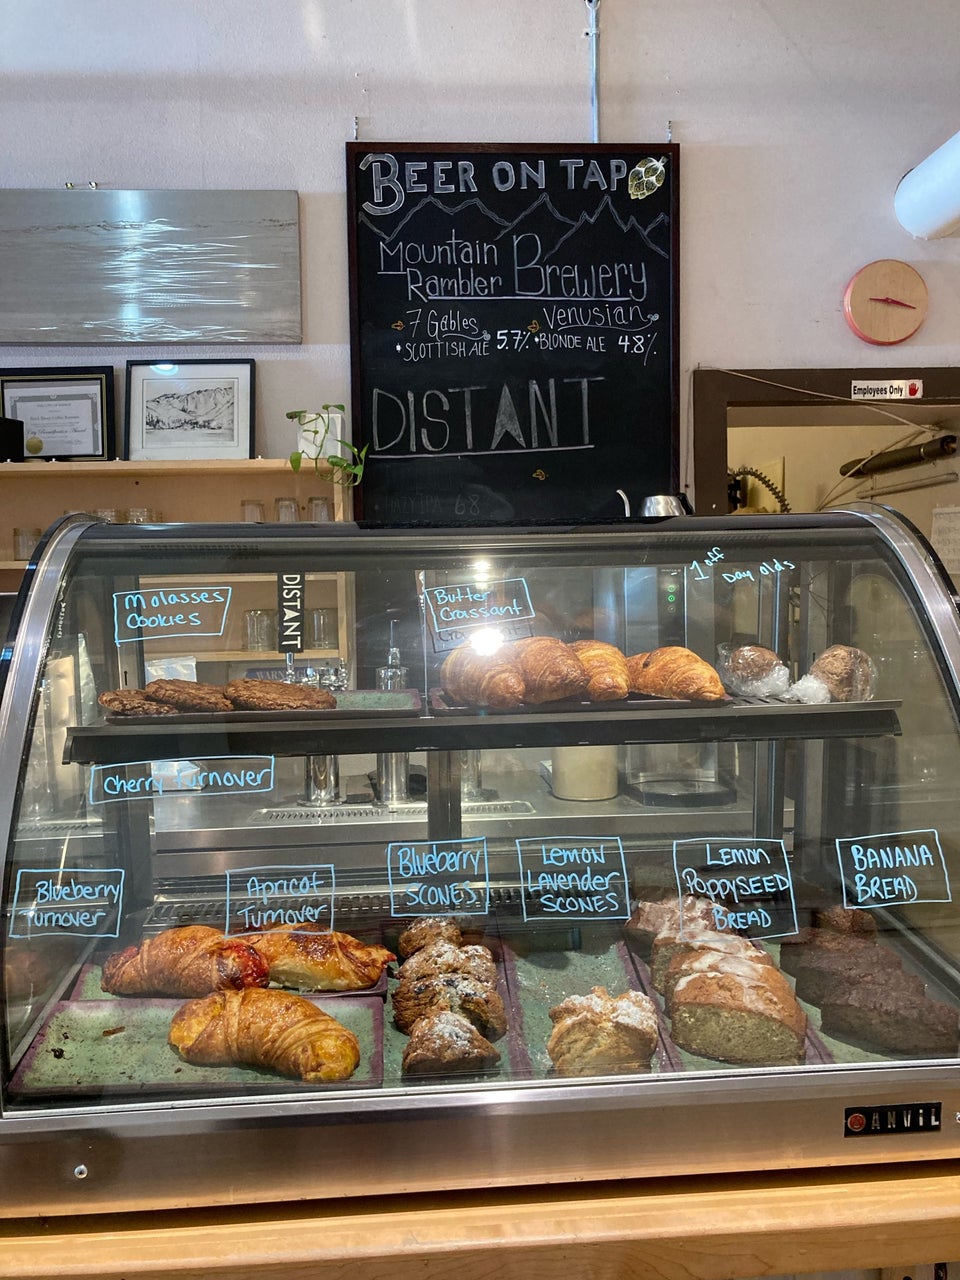 BEER ON TAP
Mountain
Rambler Brewery
7 Gables Venusian
• SCOTTISH ALE 5.7% • BLONDE ALE 4.8%
DISTANT
Employees Only
1 off
Day olds
Molasses
Cookies
DISTANT
Butter
Croissant
Cherry Turnover
Blueberry
Turnover
Apricot
Turnover
Blueberry
SCONES
LEMON
Lavender
SCONES
LEMON
POPPYSEED
BREAD
BANANA
BREAD
ANVIL